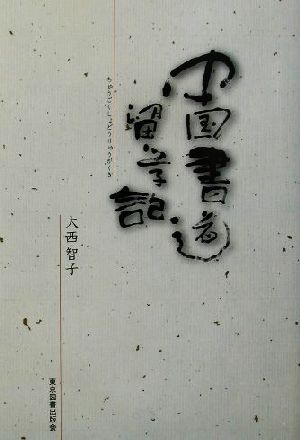 中国書道
留学記
ちゅうごくしょどうりゅうがくき
大西智子
東京図書出版会